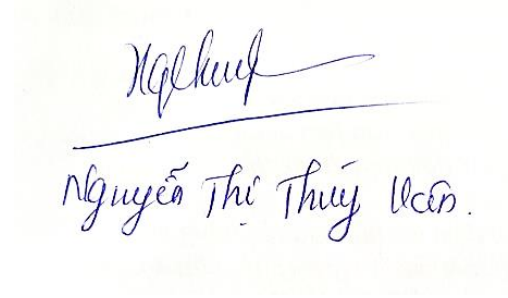 Nguyễn Thị Thúy Vân.